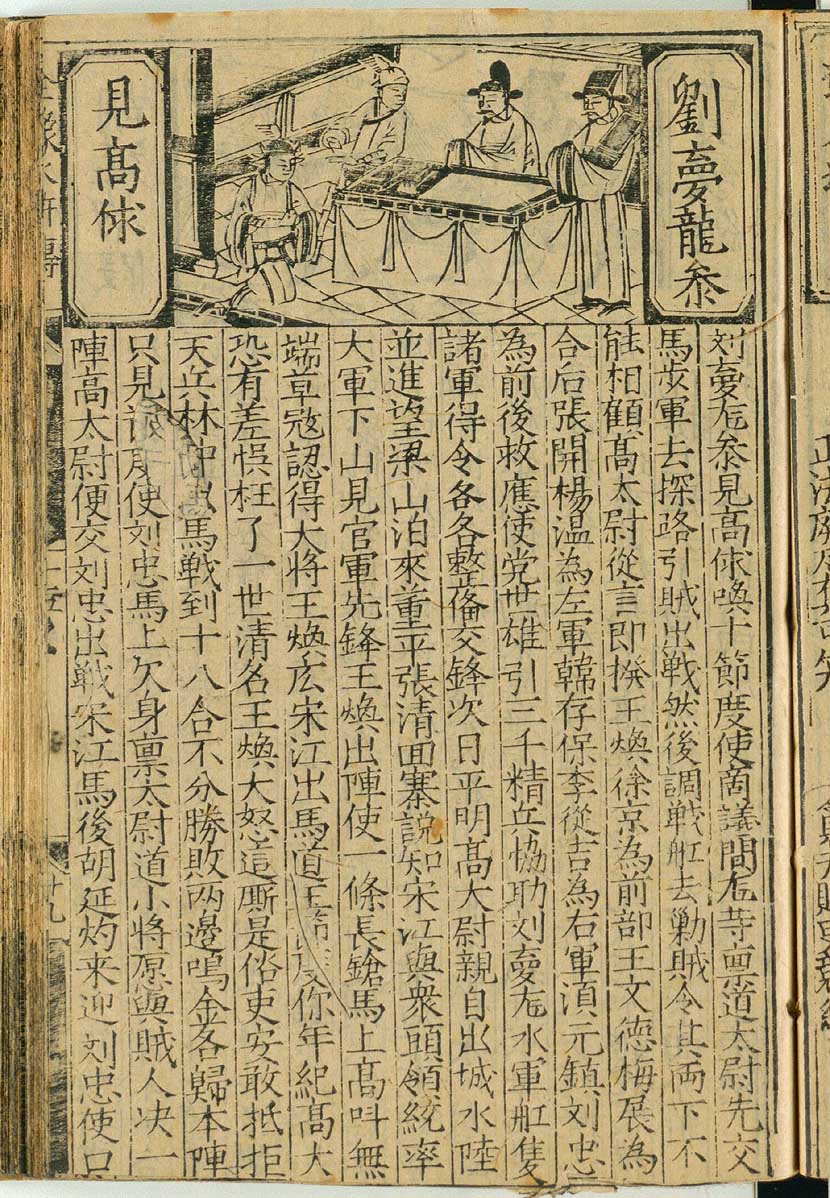 劉夣龍叅
見高俅
刘夣龙叅見高俅喚十節度使啇議間龙等禀道太尉先交
馬步軍去探路引賊出戦然後調戦舡去勦賊令其両下不
能相顧高太尉從言即撥王煥徐京為前部王文德梅展為
合后張開楊温為左軍韓存保李從吉為右軍湏元鎮刘忠
為前後救應使党世雄引三千精兵恊助刘夣龙水軍舡隻
諸軍得令各各整偹交鋒次日平明高太尉親自出城水陸
並進望梁山泊來董平張清囬寨說知宋江與衆頭領統率
大軍下山見官軍先鋒王煥出陣使一條長鎗馬上高呌無
端草寇認得大将王煥広宋江出馬道王節度你年紀高大
恐有差悞枉了一世清名王煥大怒這厮是俗吏安敢抵拒
天兵林冲出馬戦到十八合不分勝敗两邊鳴金各歸本陣
只見節度使刘忠馬上欠身禀太尉道小将愿與賊人决一
陣高太尉便交刘忠出戦宋江馬後胡延灼来迎刘忠使口
全像水滸傳
卄九